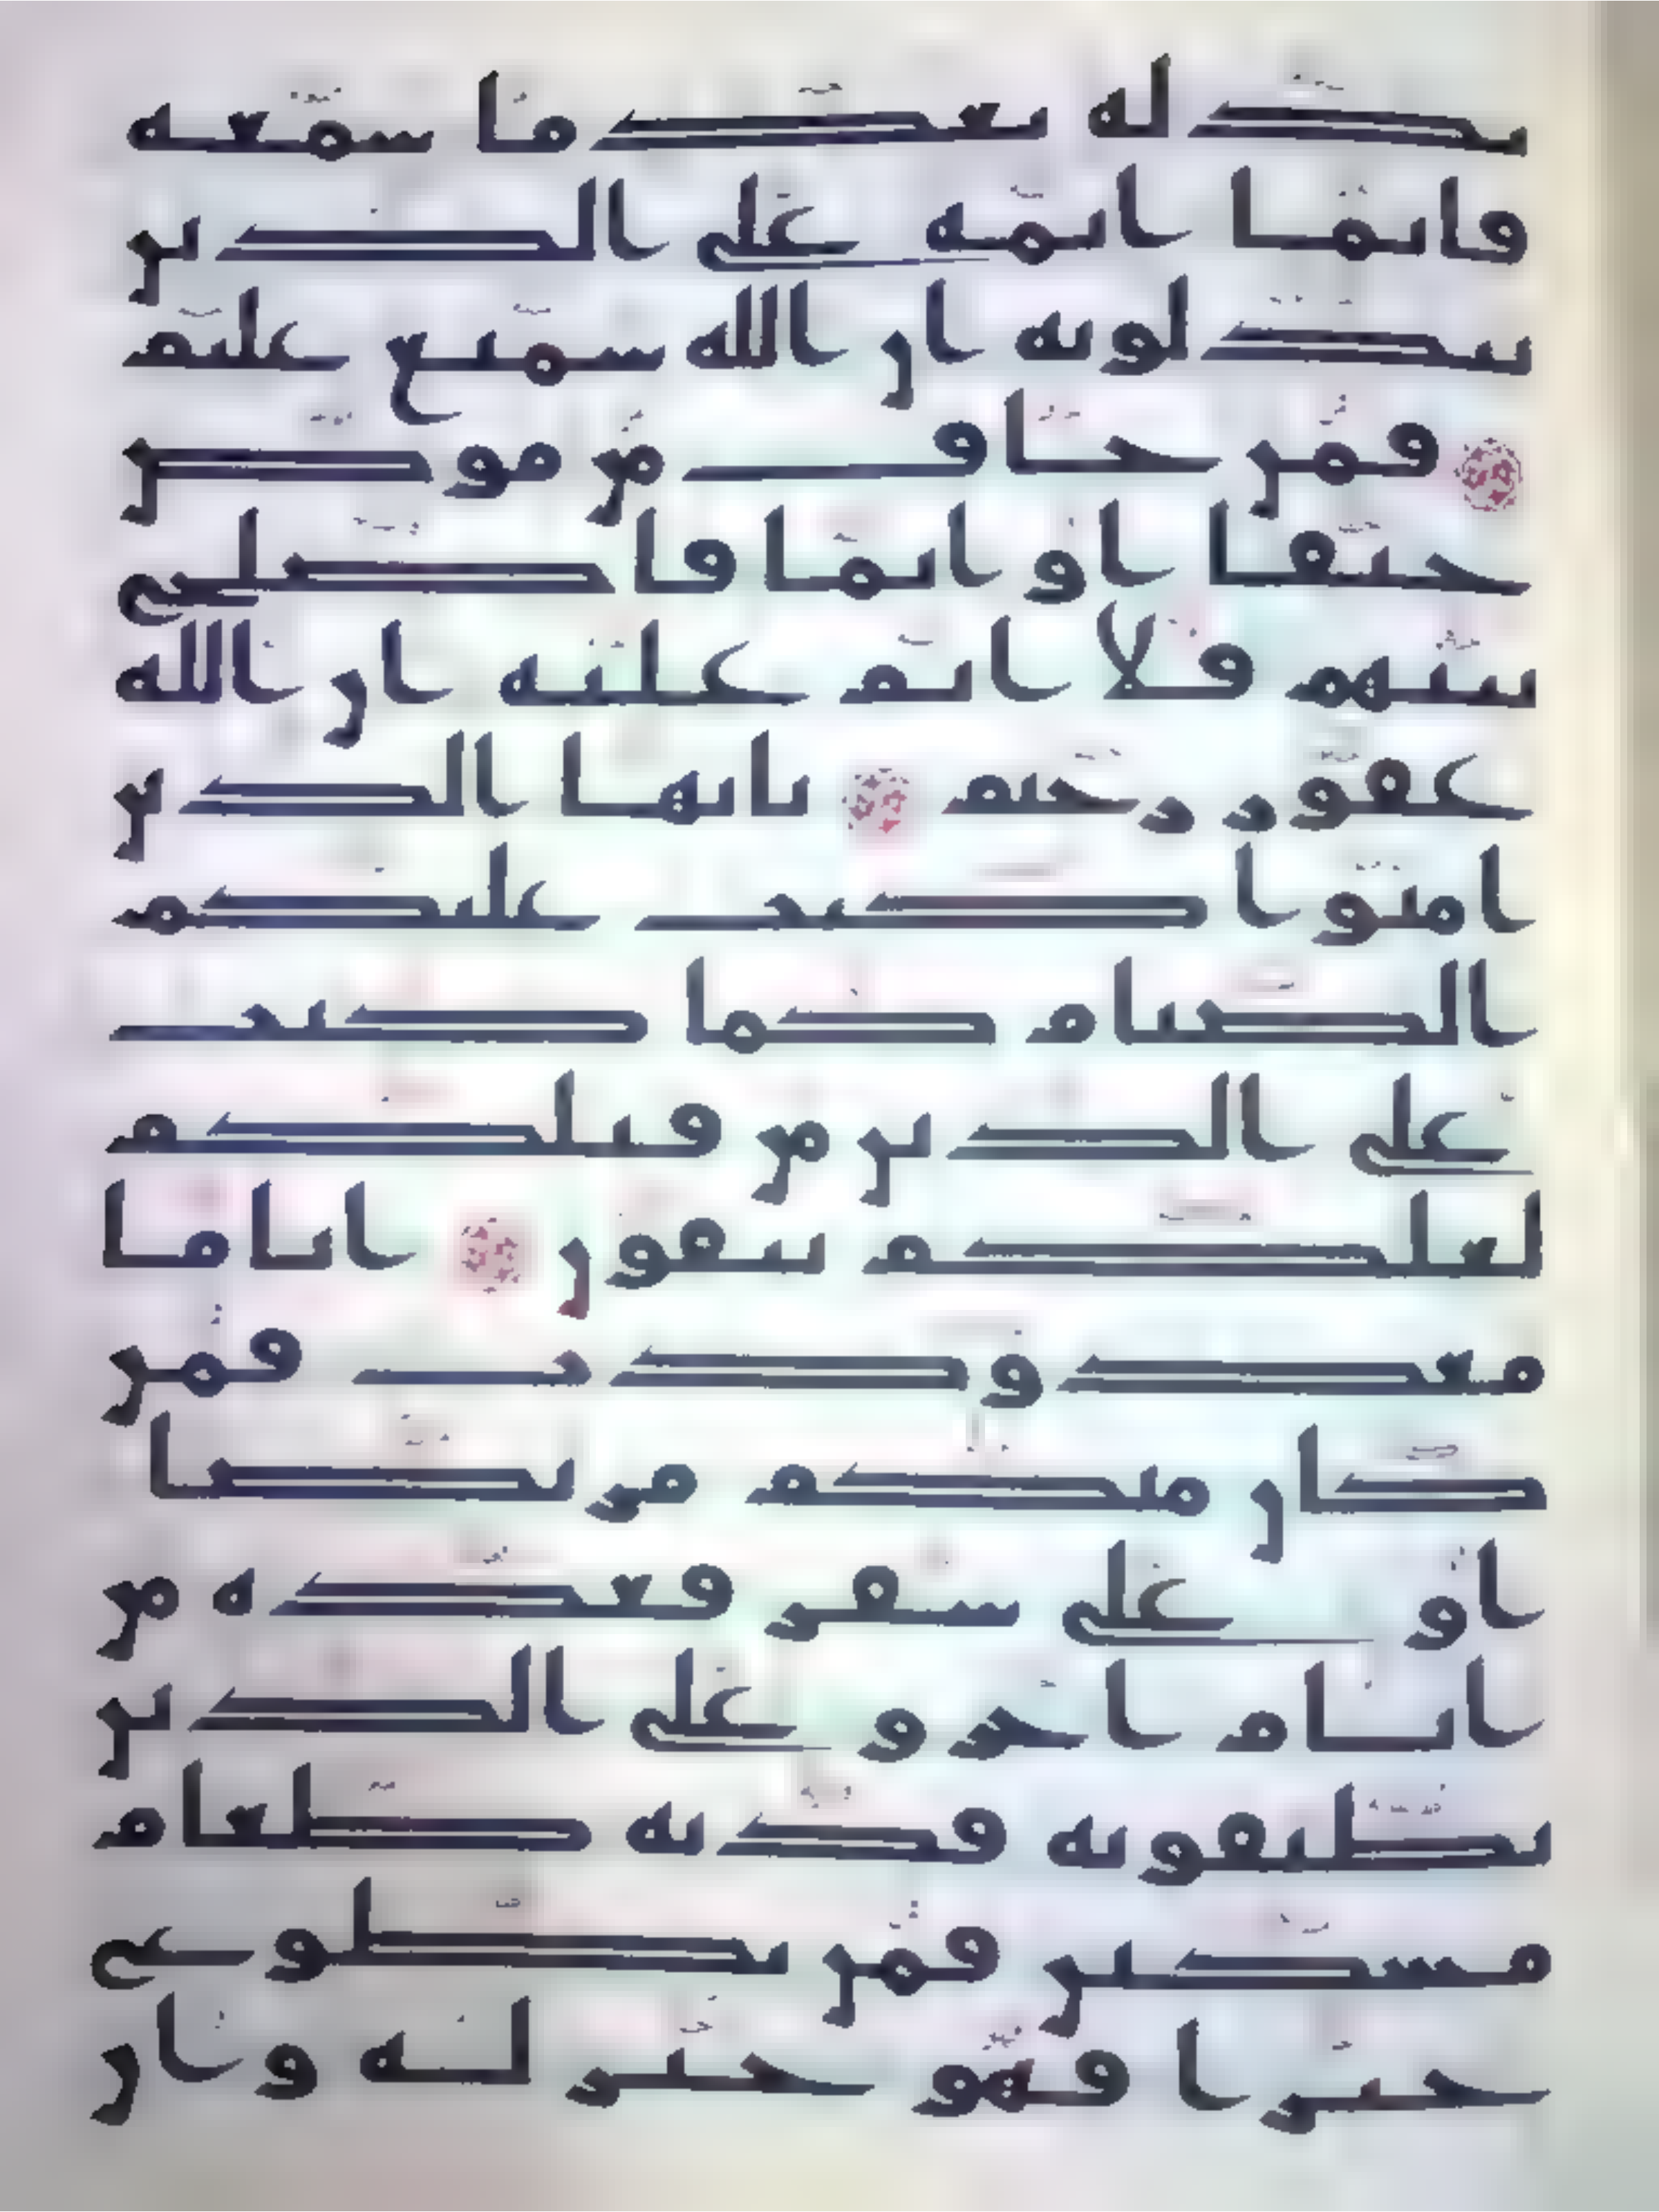 بدله بعد ما سمعه
فانما اثمه على الذين
يبدلونه ان الله سميع عليم
فمن خاف من موص
جنفا او اثما فاصلح
بينهم فلا اثم عليه ان الله
غفور رحيم يايها الذين
امنوا كتب عليكم
الصيام كما كتب
على الذين من قبلكم
لعلكم تتقون اياما
معدودت فمن
كان منكم مريضا
او على سفر فعدة من
ايام اخر وعلى الذين
يطيقونه فدية طعام
مسكين فمن تطوع
خيرا فهو خير له وان